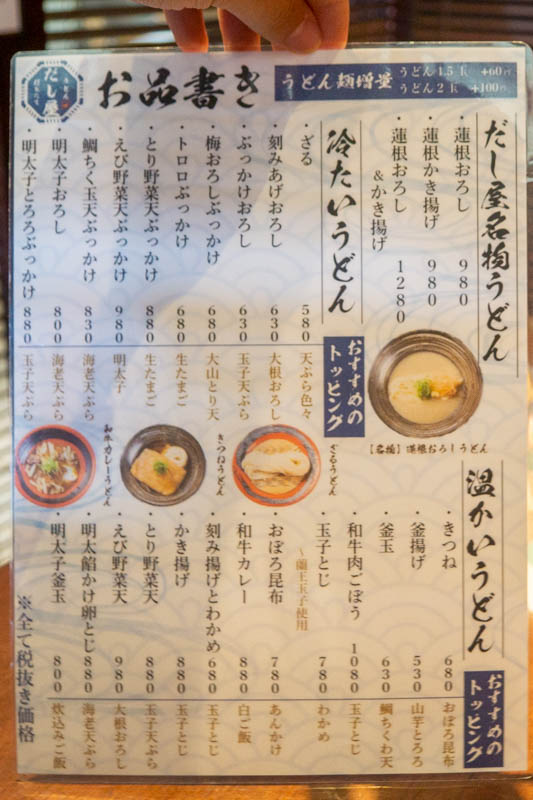 だし屋
お品書き
うどん麺増量
うどん1.5玉 +60円
うどん2玉 +100円
だし屋名物うどん
・蓮根おろし 980
・蓮根かき揚げ 980
・蓮根おろし
&かき揚げ 1280
【名物】蓮根おろしうどん
冷たいうどん
おすすめの
トッピング
・ざる 580 天ぷら色々
・刻みあげおろし 630 大根おろし
・ぶっかけおろし 630 玉子天ぷら
・梅おろしぶっかけ 680 大山とり天
・トロロぶっかけ 680 生たまご
・とり野菜天ぶっかけ 880 生たまご
・えび野菜天ぶっかけ 980 明太子
・鯛ちく玉天ぶっかけ 830 海老天ぷら
・明太子おろし 800 海老天ぷら
・明太子とろろぶっかけ 880 玉子天ぷら
ざるうどん
きつねうどん
和牛カレーうどん
温かいうどん
おすすめの
トッピング
・きつね 680 おぼろ昆布
・釜揚げ 530 山芋とろろ
・釜玉 630 鯛ちくわ天
・和牛肉ごぼう 1080 玉子とじ
・玉子とじ 780 わかめ
～蘭王玉子使用
・おぼろ昆布 780 あんかけ
・和牛カレー 880 白ご飯
・刻み揚げとわかめ 680 玉子とじ
・かき揚げ 880 玉子とじ
・とり野菜天 880 玉子天ぷら
・えび野菜天 980 大根おろし
・明太餡かけ卵とじ 880 海老天ぷら
・明太子釜玉 800 炊込みご飯
※全て税抜き価格